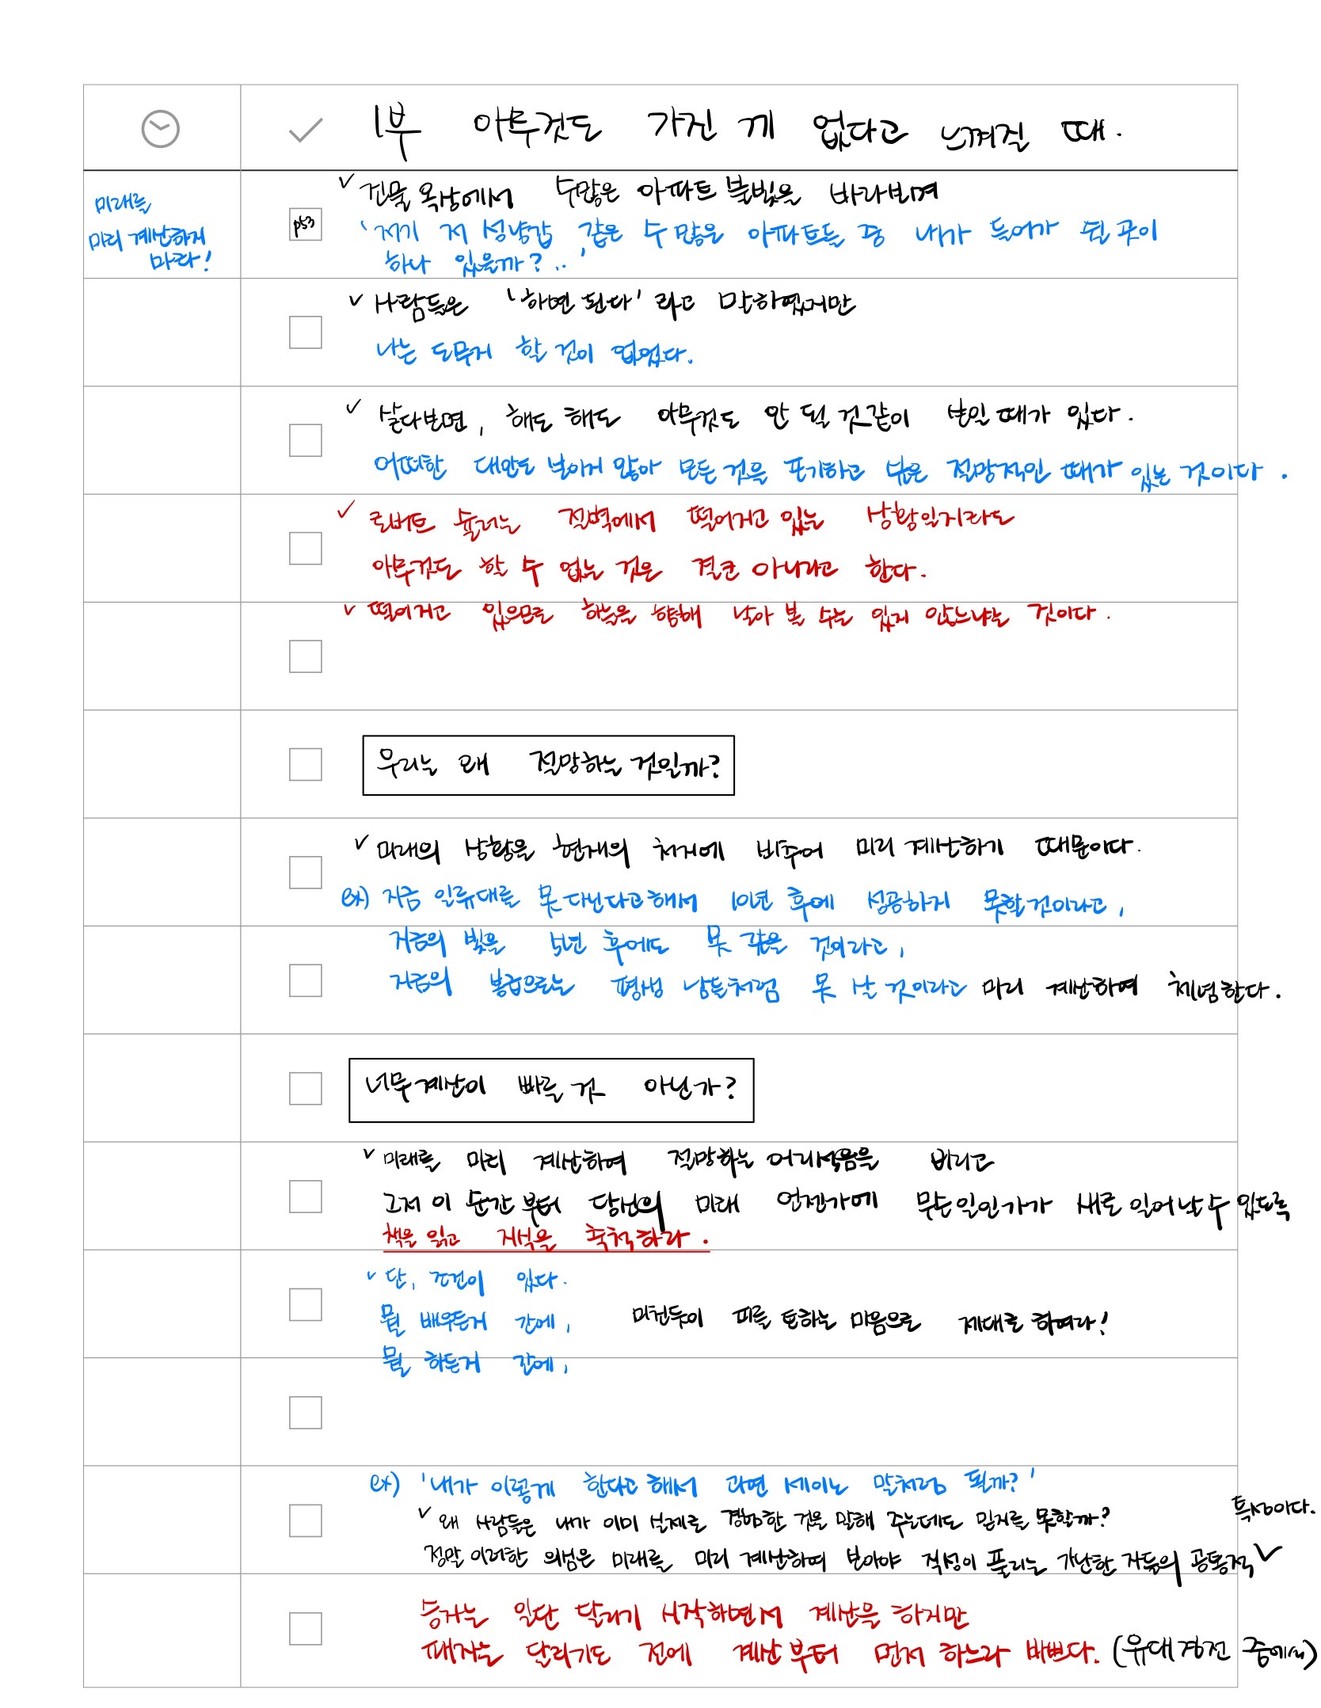 1부 아무것도 가진 게 없다고 느껴질 때.
미래를
미리 계산하지
마라!
p53
✓ 건물 옥상에서 수많은 아파트 불빛을 바라보며
'저기 저 성냥갑 같은 수 많은 아파트들 중 내가 들어가 쉴 곳이
하나 있을까?..'
✓ 사람들은 '하면 된다' 라고 말하였지만
나는 도무지 할 것이 없었다.
✓ 살다보면, 해도 해도 아무것도 안 될 것같이 보일 때가 있다.
어떠한 대안도 보이지 않아 모든 것을 포기하고 싶은 절망적인 때가 있는 것이다.
✓ 로버트 슐러는 절벽에서 떨어지고 있는 상황일지라도
아무것도 할 수 없는 것은 결코 아니라고 한다.
✓ 떨어지고 있으므로 하늘을 향해 날아 볼 수는 있지 않느냐는 것이다.
우리는 왜 절망하는 것일까?
✓ 미래의 상황을 현재의 처지에 비추어 미리 계산하기 때문이다.
ex) 지금 일류대를 못 다닌다고 해서 10년 후에 성공하지 못할것이라고,
지금의 빚을 5년 후에도 못 갚을 것이라고,
지금의 봉급으로는 평생 남들처럼 못 살 것이라고 미리 계산하여 체념한다.
너무 계산이 빠를 것 아닌가?
✓ 미래를 미리 계산하여 절망하는 어리석음을 버리고
그저 이 순간 부터 당신의 미래 언젠가에 무슨일인가가 새로 일어날 수 있도록
책을 읽고 지식을 축척하라.
✓ 단, 조건이 있다.
뭘 배우든지 간에, 미친듯이 피를 토하는 마음으로 제대로 하여라!
뭘 하든지 간에,
ex) '내가 이렇게 한다고 해서 과연 세이노 말처럼 될까?'
✓ 왜 사람들은 내가 이미 실제로 경험한 것을 말해 주는데도 믿지를 못할까?
정말 이러한 의심은 미래를 미리 계산하여 보아야 직성이 풀리는 가난한 자들의 공통적 ✓ 특성이다.
승자는 일단 달리기 시작하면서 계산을 하지만
패자는 달리기도 전에 계산 부터 먼저 하느라 바쁘다. (유대경전 중에서)